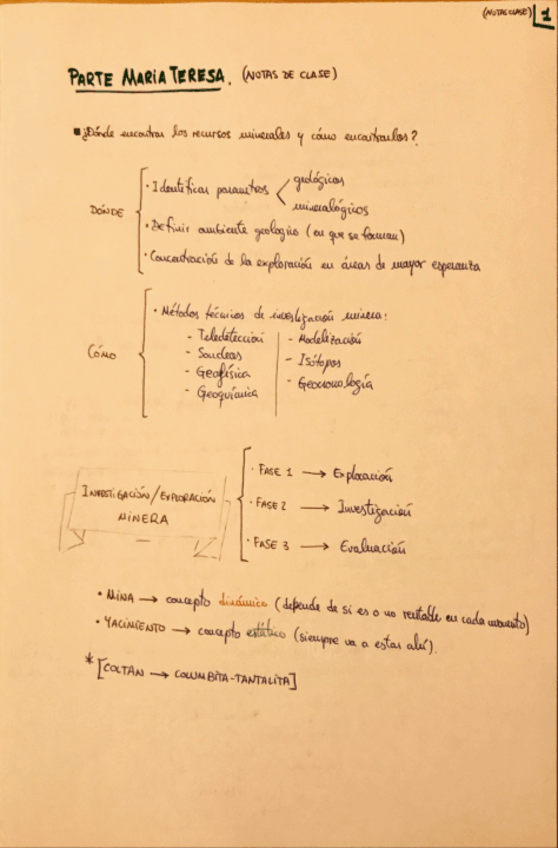 (NOTAS CLASE) 1
PARTE MARIA TERESA. (NOTAS DE CLASE)
▪ ¿Dónde encontrar los recursos minerales y cómo encontrarlos?
DÓNDE
· Identificar parametros < geológicos
mineralógicos
· Definir ambiente geologico (en que se forman)
· Concentración de la exploración en áreas de mayor esperanza
CÓMO
· Métodos técnicos de investigación minera:
- Teledetección
- Sondeos
- Geofísica
- Geoquímica
- Modelización
- Isótopos
- Geocronología
INVESTIGACIÓN/EXPLORACIÓN
MINERA
· FASE 1 → Exploración
· FASE 2 → Investigación
· FASE 3 → Evaluación
• MINA → concepto dinámico (depende de si es o no rentable en cada momento)
• YACIMIENTO → concepto estático (siempre va a estar ahí).
* [COLTAN → COLUMBITA-TANTALITA]